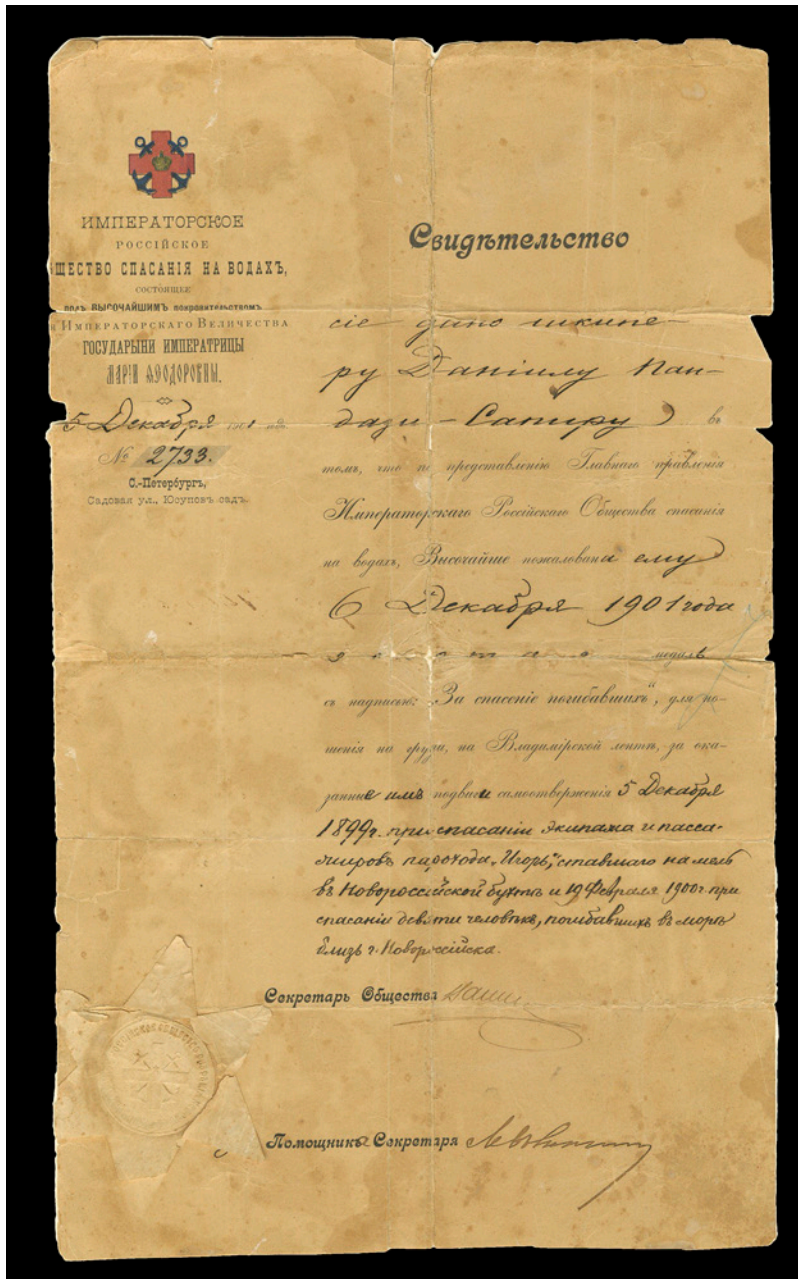 ИМПЕРАТОРСКОЕ
РОССІЙСКОЕ
ЩЕСТВО СПАСАНІЯ НА ВОДАХЪ,
СОСТОЯЩЕЕ
ПОДЪ ВЫСОЧАЙШИМЪ покровительствомъ
ИМПЕРАТОРСКАГО ВЕЛИЧЕСТВА
ГОСУДАРЫНИ ИМПЕРАТРИЦЫ
МАРІИ ѲЕОДОРОВНЫ.
5 Декабря
№ 2733.
С.-Петербургъ,
Садовая ул., Юсуповъ садъ.
Свидѣтельство
сіе дано шкипе-
ру Даніилу Пан-
дази-Сапиру въ
томъ, что по представленію Главнаго правленія
Императорскаго Россійскаго Общества спасанія
на водахъ, Высочайше пожалована ему
6 Декабря 1901 года
золотая медаль
съ надписью: „За спасеніе погибавшихъ“, для но-
шенія на груди, на Владимірской лентѣ, за ока-
занные имъ подвиги самоотверженія 5 Декабря
1899 г. при спасаніи экипажа и пасса-
жировъ парохода „Игорь“, ставшаго на мель
въ Новороссійской бухтѣ и 19 Февраля 1900 г. при
спасаніи девяти человѣкъ, погибавшихъ въ морѣ
близъ г. Новороссійска.
Секретарь Общества
Помощникъ Секретаря